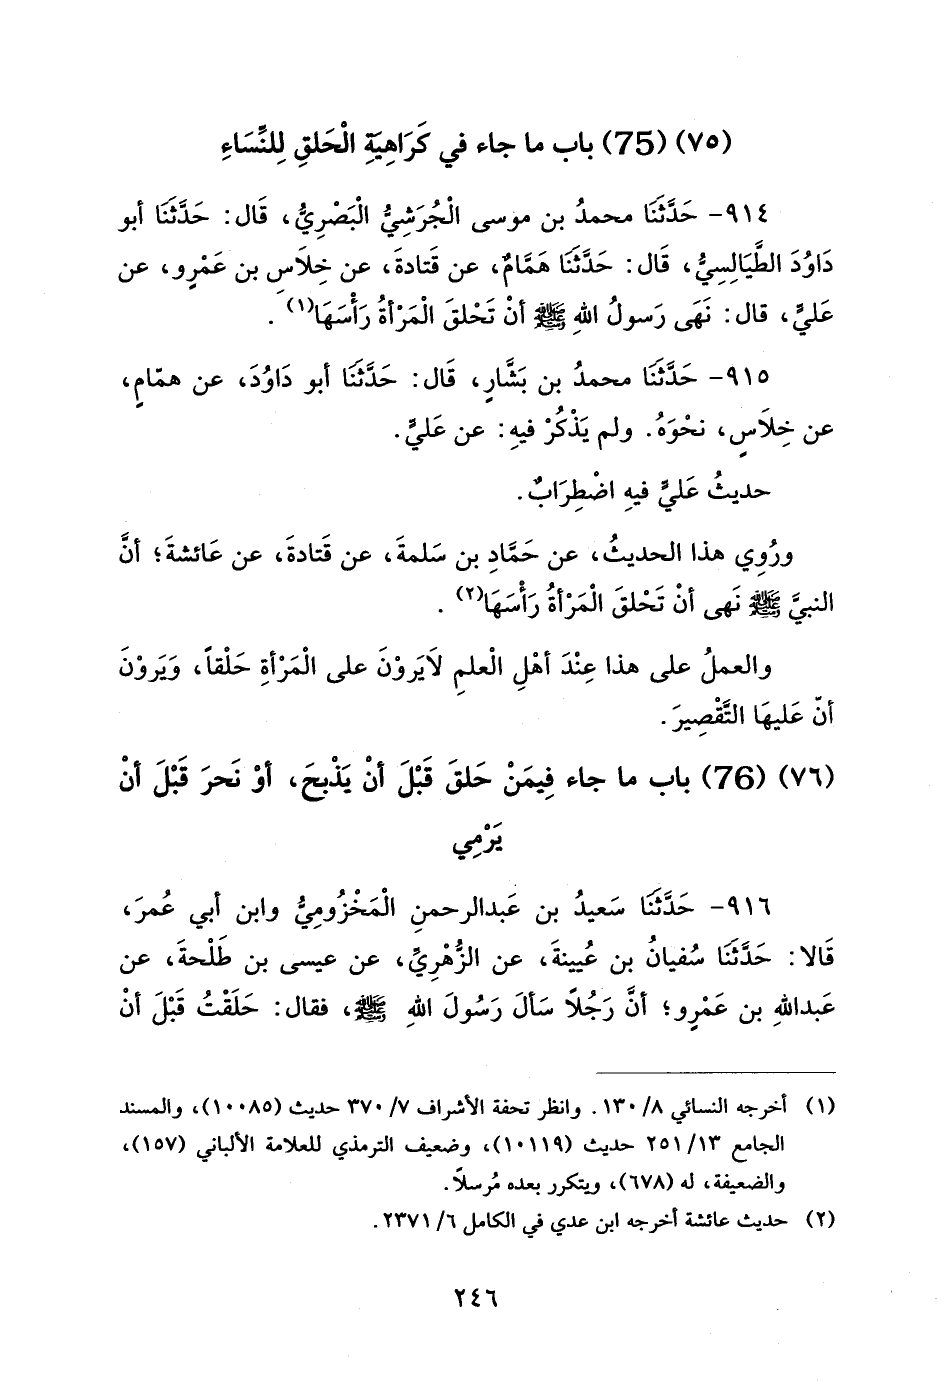 (٧٥) (75) باب ما جاء في كَرَاهِيَةِ الْحَلقِ لِلنِّسَاءِ
٩١٤- حَدَّثَنَا محمدُ بن موسى الْجُرَشِيُّ الْبَصْرِيُّ، قَال: حَدَّثَنَا أبو
دَاوُدَ الطَّيَالِسِيُّ، قَال: حَدَّثَنَا هَمَّامٌ، عن قَتادةَ، عن خِلاَسِ بن عَمْرٍو، عن
عَليٍّ، قال: نَهَى رَسولُ اللهِ ﷺ أنْ تَحْلقَ الْمَرْأةُ رَأْسَهَا(١).
٩١٥- حَدَّثَنَا محمدُ بن بَشَّارٍ، قَال: حَدَّثَنَا أبو دَاوُدَ، عن همّامٍ،
عن خِلَاسٍ، نحْوَهُ. ولم يَذْكُرْ فيهِ: عن عَليٍّ.
حديثُ عَليٍّ فيهِ اضْطِرَابٌ.
ورُوِي هذا الحديثُ، عن حَمَّادِ بن سَلمةَ، عن قَتادةَ، عن عَائشةَ؛ أنَّ
النبيَّ ﷺ نَهى أنْ تَحْلقَ الْمَرْأةُ رَأْسَهَا(٢).
والعملُ على هذا عِنْدَ أهْلِ الْعلمِ لاَيَروْنَ على الْمَرْأةِ حَلْقاً، وَيَروْنَ
أنّ عَليهَا التَّقْصِيرَ.
(٧٦) (76) باب ما جاء فِيمَنْ حَلقَ قَبْلَ أنْ يَذْبحَ، أوْ نَحرَ قَبْلَ أنْ
يَرْمِي
٩١٦- حَدَّثَنَا سَعيدُ بن عَبدالرحمنِ الْمَخْزُومِيُّ وابن أبي عُمرَ،
قَالا: حَدَّثَنَا سُفيانُ بن عُيينةَ، عن الزُّهْرِيِّ، عن عيسى بن طَلْحةَ، عن
عَبداللهِ بن عَمْرٍو؛ أنَّ رَجُلاً سَألَ رَسُولَ اللهِ ﷺ، فقال: حَلَقْتُ قَبْلَ أنْ
(١) أخرجه النسائي ٨/ ١٣٠. وانظر تحفة الأشراف ٧/ ٣٧٠ حديث (١٠٠٨٥)، والمسند
الجامع ١٣/ ٢٥١ حديث (١٠١١٩)، وضعيف الترمذي للعلامة الألباني (١٥٧)،
والضعيفة، له (٦٧٨)، ويتكرر بعده مُرسلاً.
(٢) حديث عائشة أخرجه ابن عدي في الكامل ٦/ ٢٣٧١.
٢٤٦